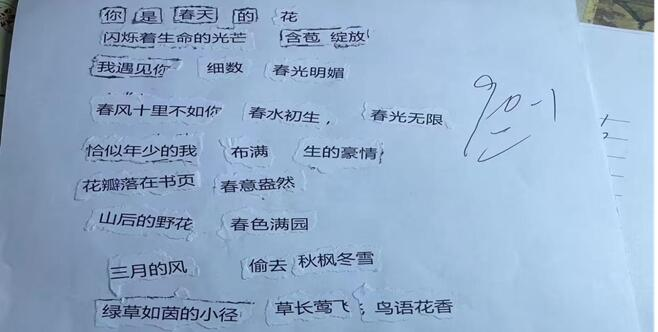 你 是 春天 的 花
闪烁着生命的光芒 含苞 绽放
我遇见你 细数 春光明媚
春风十里不如你 春水初生， 春光无限
恰似年少的我 布满 生的豪情
花瓣落在书页 春意盎然
山后的野花 春色满园
三月的风 偷去 秋枫冬雪
绿草如茵的小径 草长莺飞； 鸟语花香